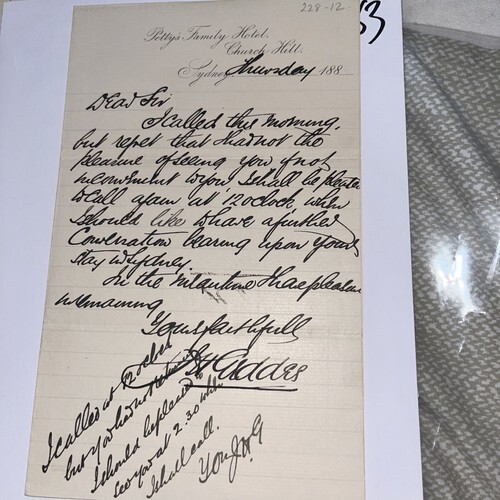 228-12
Petty's Family Hotel,
Church Hill,
Sydney Thursday 188
Dear Sir
I called this morning,
but regret that I had not the
pleasure of seeing you if not
inconvenient to you I shall be pleased
to call again at 12 oclock when
I should like to have a further
Conversation bearing upon your
stay in Sydney.
In the meantime I have pleasure
in remaining
Yours faithfully
Geddes
I called at 12 oclock
but you had not
I should be pleased to
see you at 2.30 when
I shall call.
Yours